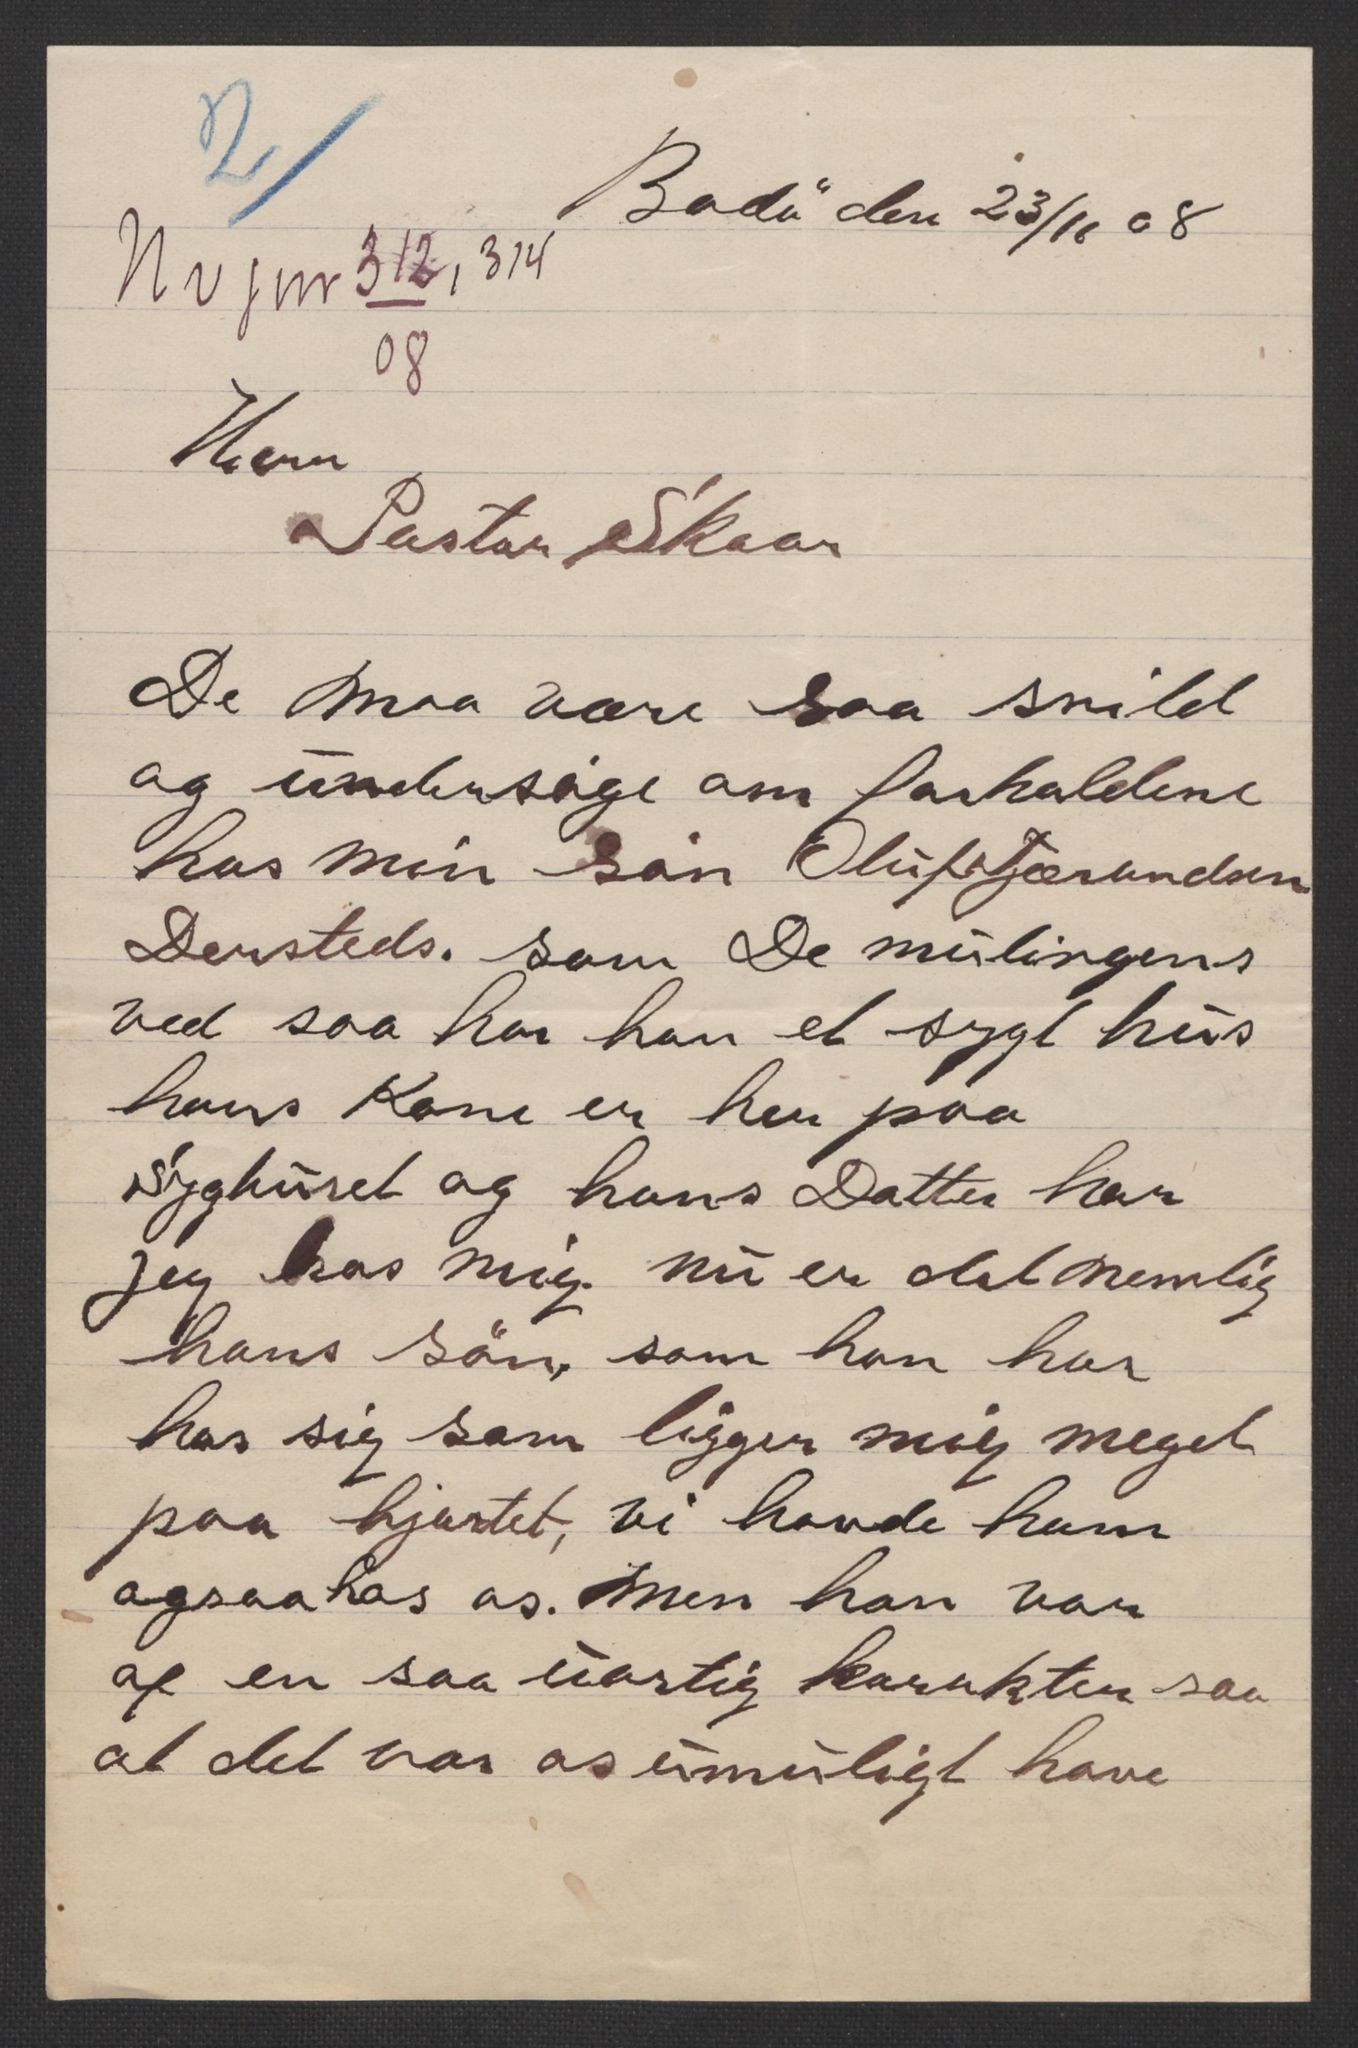 2/
Bodö den 23/11 08
N v jnr 312, 314
08
Herr
Pastor Skaar
De maa være saa snild
og undersöge om forholdene
hos min sön Oluf
Dersteds. som De mulingens
ved saa har han et sygt hus
hans Kone er her paa
Syghuset og hans Datter har
jeg hos mig. nu er det nemlig
hans sön, som han har
hos sig som ligger mig meget
paa hjertet, vi havde ham
ogsaa hos os. Men han var
af en saa uartig karakter saa
at det var os umuligt have